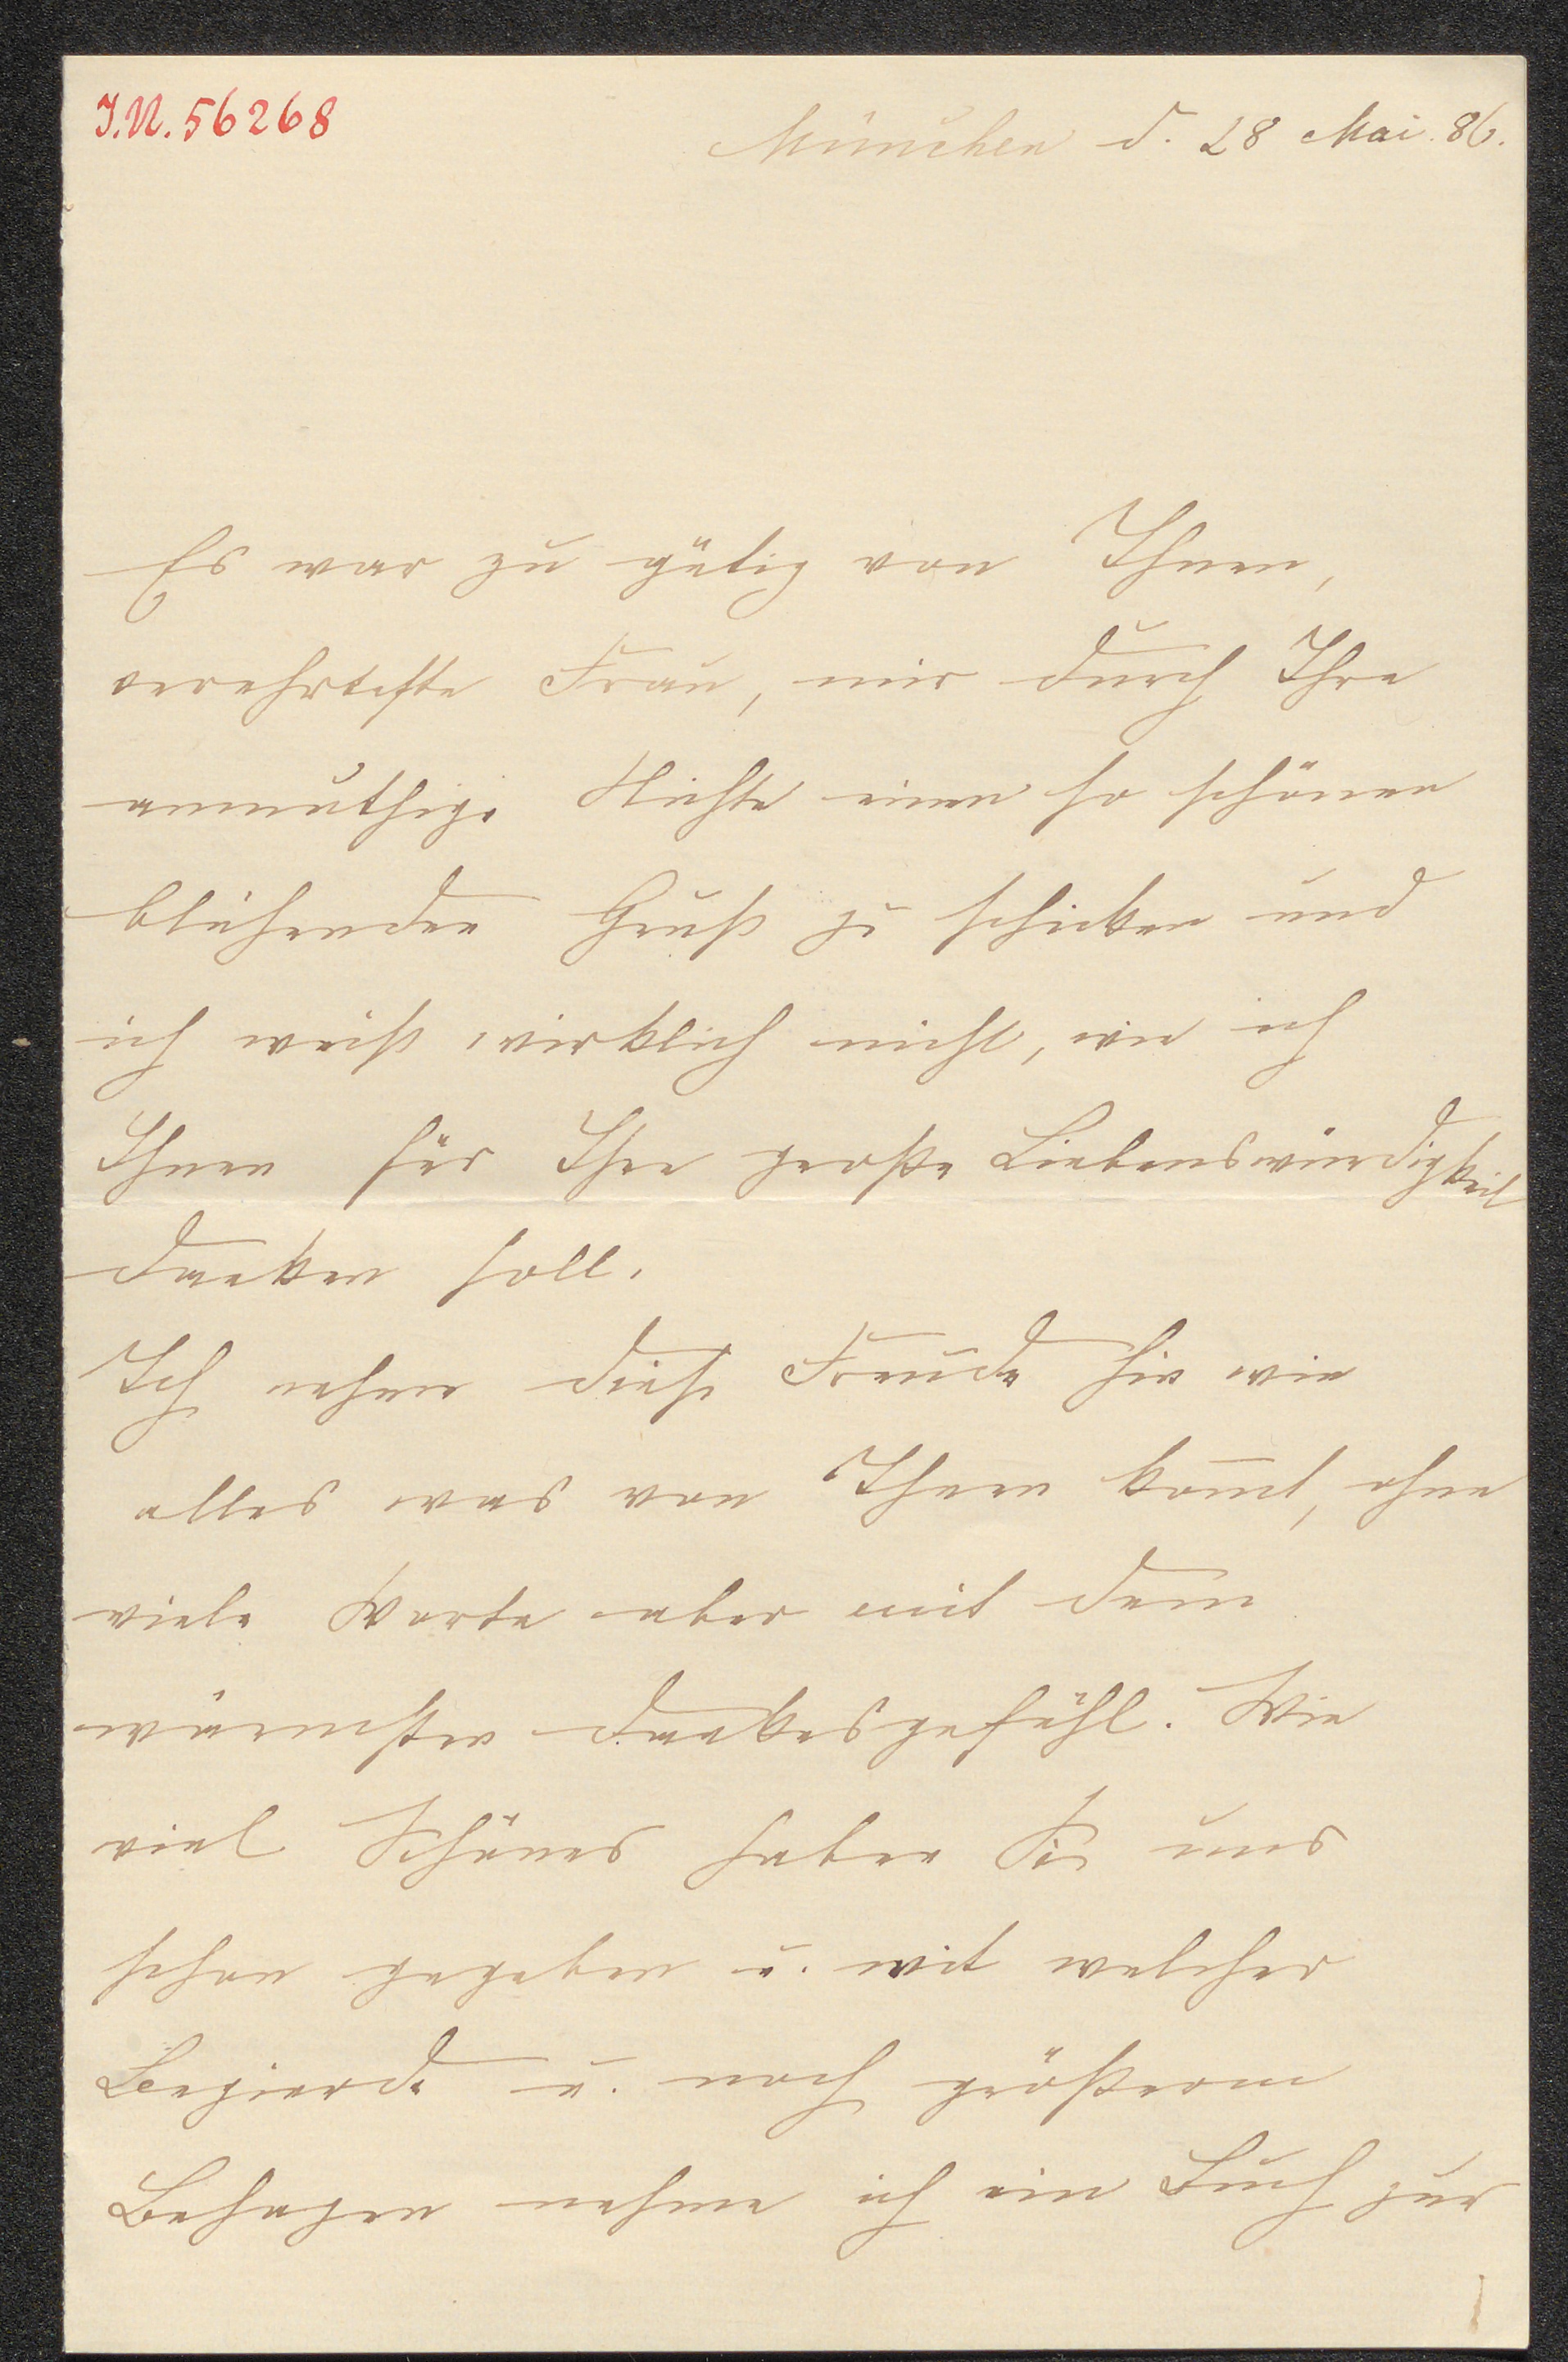 I.N. 56268
München d. 28 Mai. 86.
Es war zu gütig von Ihnen,
verehrteste Frau, mir durch Ihre
anmuthige Nichte einen so schönen
blühenden Gruß zu schicken und
ich weiß wirklich nicht, wie ich
Ihnen für Ihre große Liebenswürdigkeit
danken soll.
Ich nehme diese Freude hin wie
alles was von Ihnen kom̅t, ohne
viele Worte aber mit dem
wärmsten Dankesgefühl. Wie
viel Schönes haben Sie uns
schon gegeben u. mit welcher
Begierde u. noch größerem
Behagen nehme ich ein Buch zur